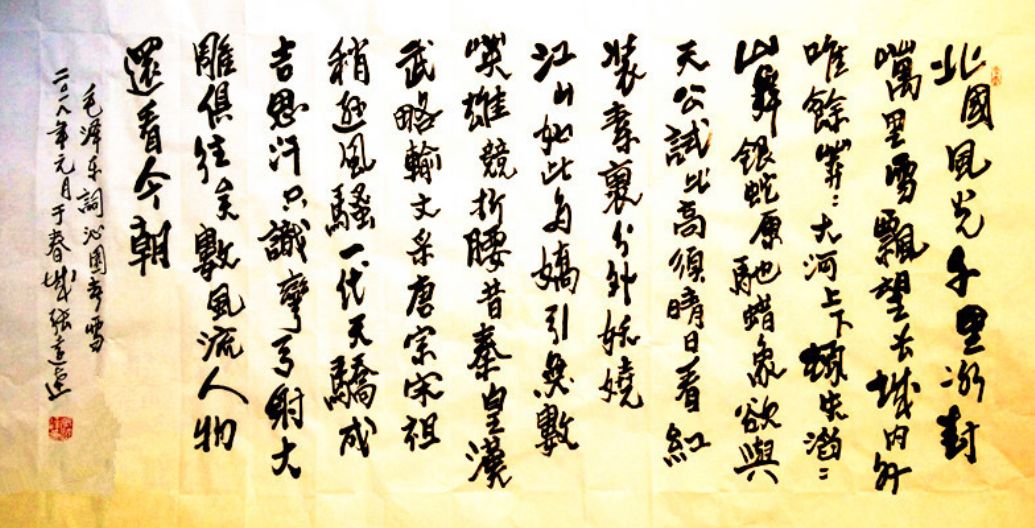 北國風光千里冰封
萬里雪飄望長城内外
唯餘莽:大河上下頓失滔:
山舞銀蛇原馳蜡象欲與
天公試比高須晴日看紅
裝素裹分外妖嬈
江山如此多嬌引無數
英雄競折腰昔秦皇漢
武略輸文采唐宗宋祖
稍遜風騷一代天驕成
吉思汗只識彎弓射大
雕俱往矣數風流人物
還看今朝
毛澤东詞沁園春雪
二〇一八年元月于春城張